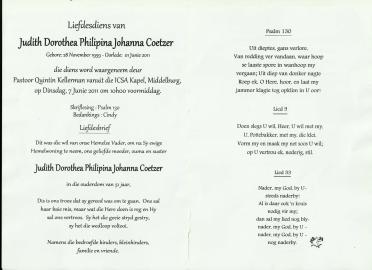 Liefdesdiens van
Judith Dorothea Philipina Johanna Coetzer
Gebore: 28 November 1959 - Oorlede: 01 Junie 2011
die diens word waargeneem deur
Pastoor Quintin Kellerman vanuit die ICSA Kapel, Middelburg,
op Dinsdag, 7 Junie 2011 om 10h00 voormiddag.
Skriflesing - Psalm 130
Bedankings : Cindy
Liefdesbrief
Dit was die wil van onse Hemelse Vader, om na Sy ewige
Hemelwoning te neem, ons geliefde moeder, ouma en suster
Judith Dorothea Philipina Johanna Coetzer
in die ouderdom van 51 jaar.
Dis is ons troos dat sy gereed was om te gaan. Ons sal
haar baie mis, maar wat die Here doen is reg en Hy
sal ons vertroos. Sy het die goeie stryd gestry,
sy het die wedloop voltooi.
Namens die bedroefde kinders, kleinkinders,
familie en vriende.
Psalm 130
Uit dieptes, gans verlore,
Van redding ver vandaan, waar hoop
se laaste spore in wanhoop my
vergaan; Uit diep van donker nagte
Roep ek, O Here, hoor, en laat my
jammer klagte tog opklim in U oor!
Lied 9
Doen slegs U wil, Heer, U wil met my.
U, Pottebakker, met my, die klei.
Vorm my en maak my net soos U wil;
op U vertrou ek, nederig, stil.
Lied 33
Nader, my God, by U-
steeds naderby:
Al is daar ook 'n kruis
nodig vir my;
dan sal my lied nog bly-
nader, my God, by U –
nader, my God, by U –
nog naderby.